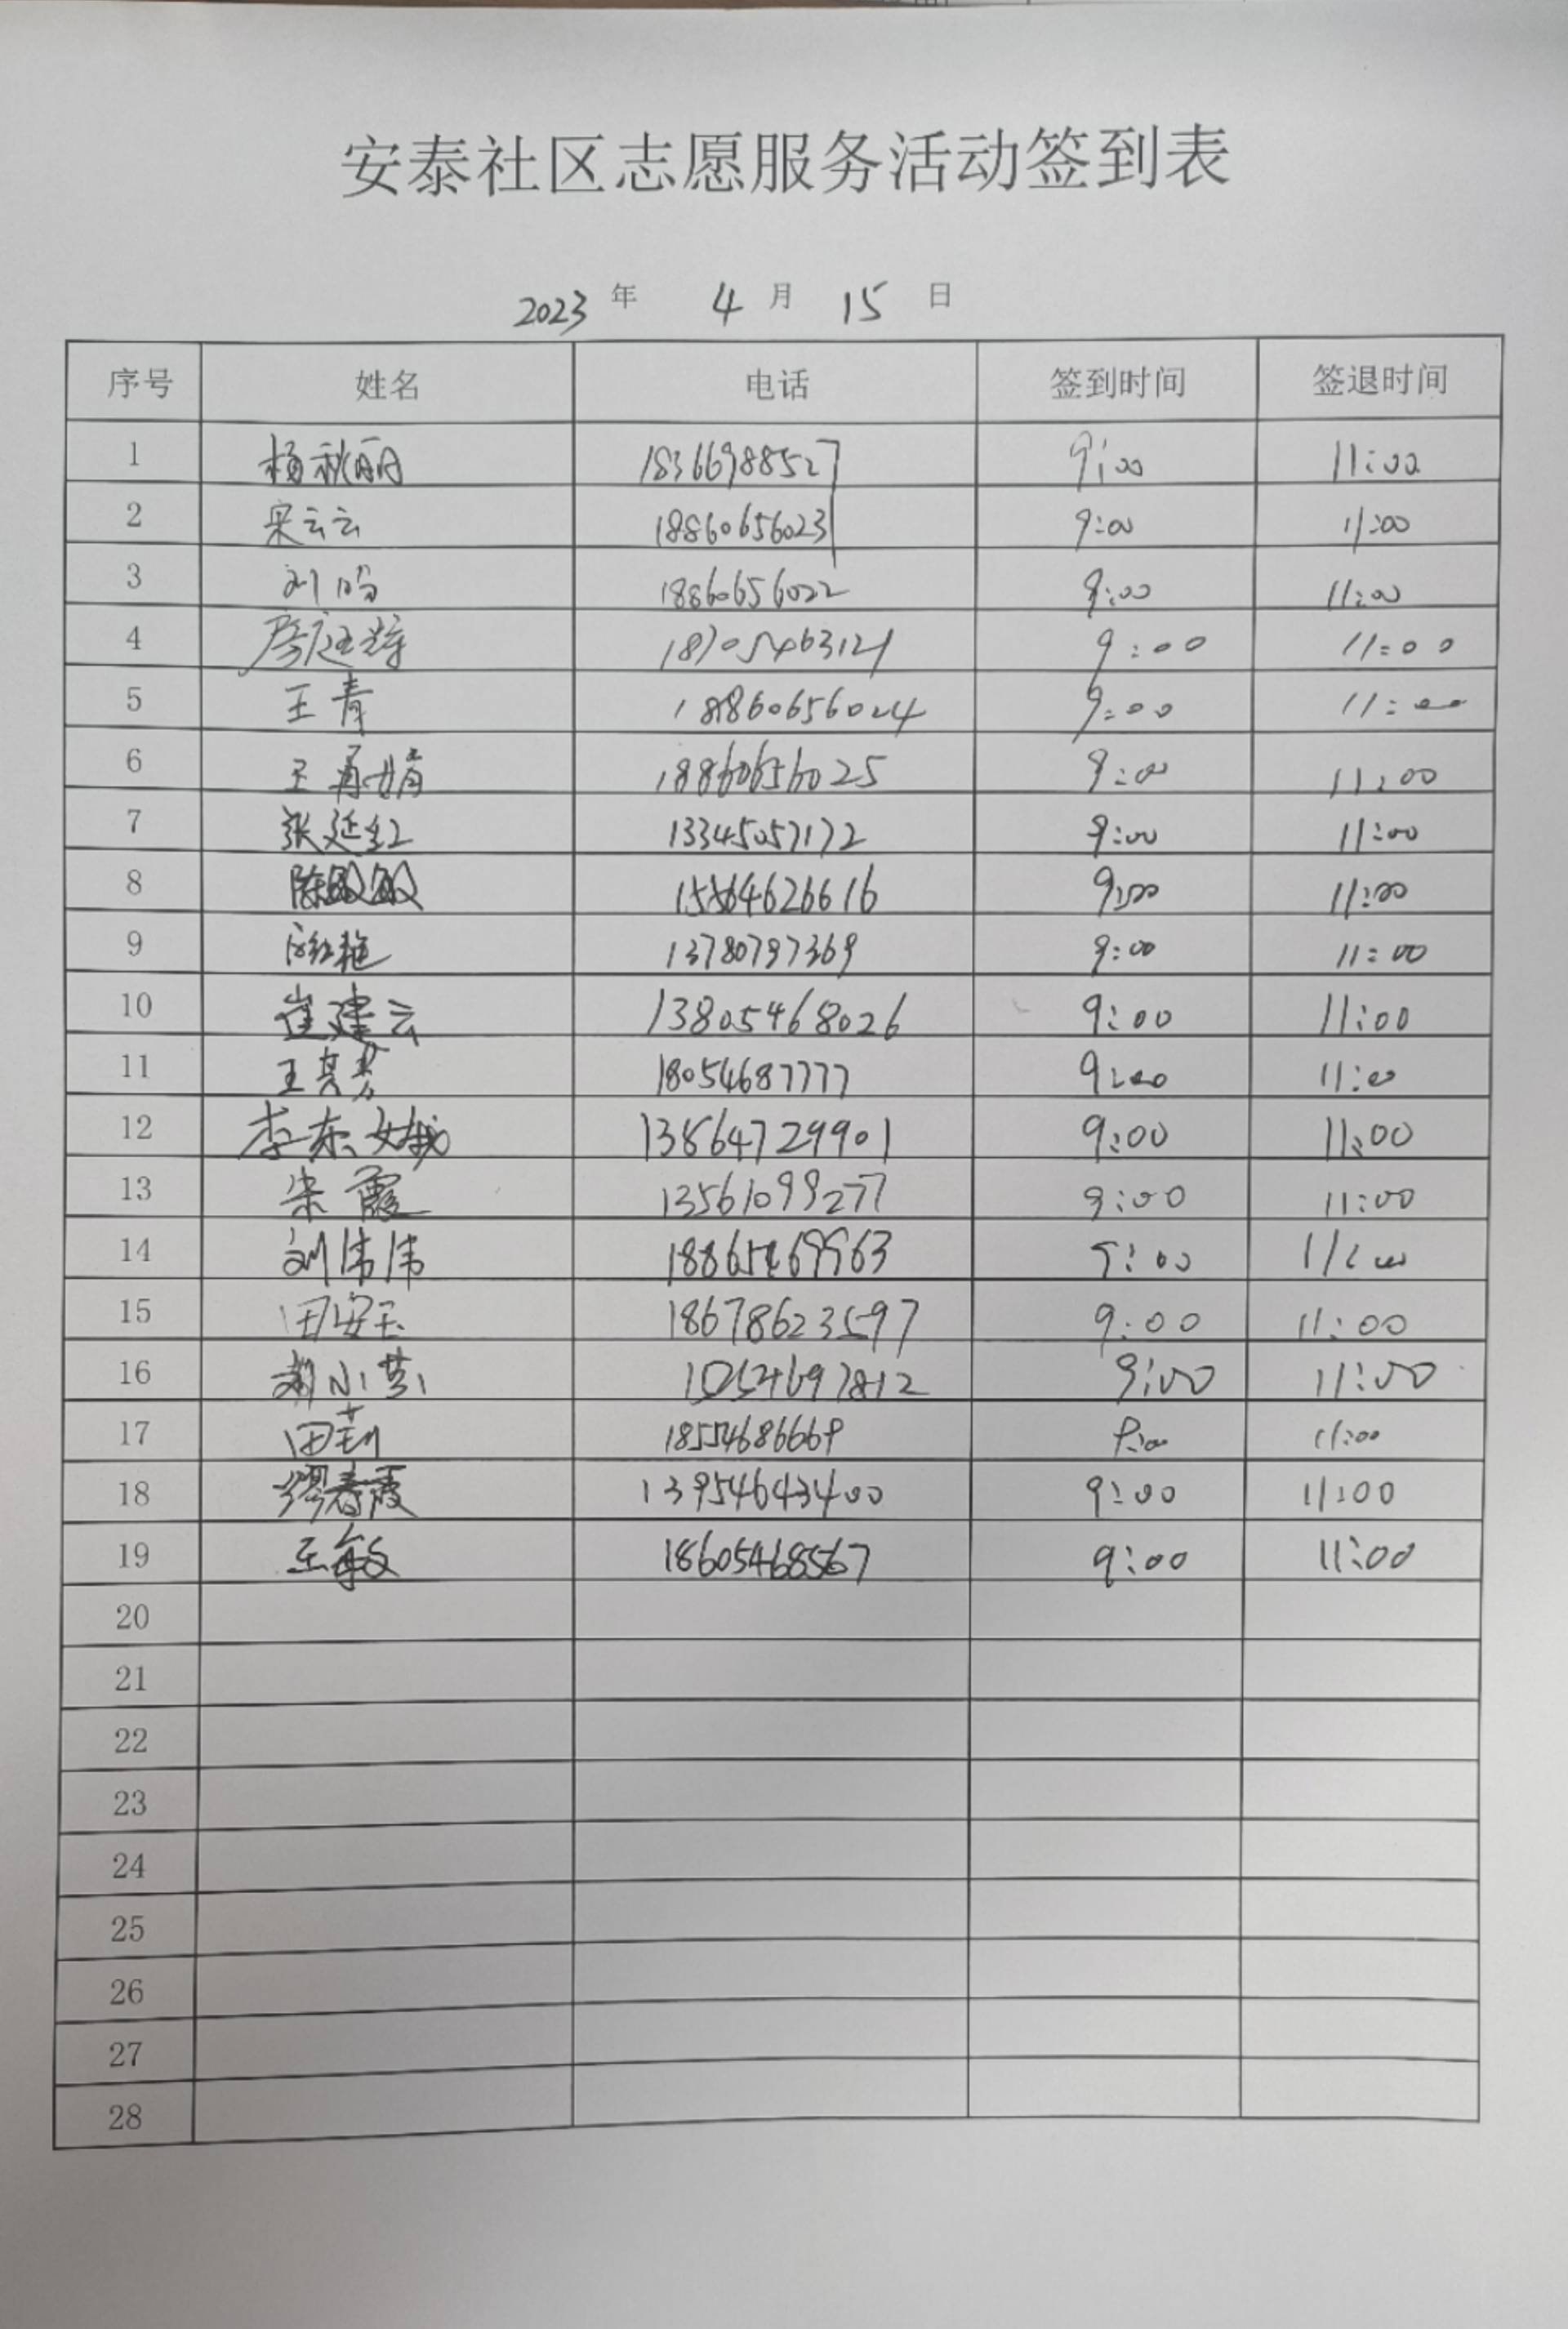 安泰社区志愿服务活动签到表
2023 年 4 月 15 日
序号 姓名 电话 签到时间 签退时间
1 杨秋丽 18366988527 9:00 11:00
2 宋云云 18860656023 9:00 11:00
3 刘 18860656022 9:00 11:00
4 18705463121 9:00 11:00
5 王青 18860656024 9:00 11:00
6 王 娟 18860656025 9:00 11:00
7 张延红 13345057172 9:00 11:00
8 陈敏敏 15564626616 9:00 11:00
9 13780797369 9:00 11:00
10 崔建云 13805468026 9:00 11:00
11 王其芳 18054687777 9:00 11:00
12 李东娥 13864729901 9:00 11:00
13 朱霞 13561099277 9:00 11:00
14 刘伟伟 18865469963 9:00 11:00
15 田安玉 18678623597 9:00 11:00
16 小 9:00 11:00
17 田莉 18554686669 9:00 11:00
18 缪春霞 13954643400 9:00 11:00
19 王敏 18605468567 9:00 11:00
20
21
22
23
24
25
26
27
28